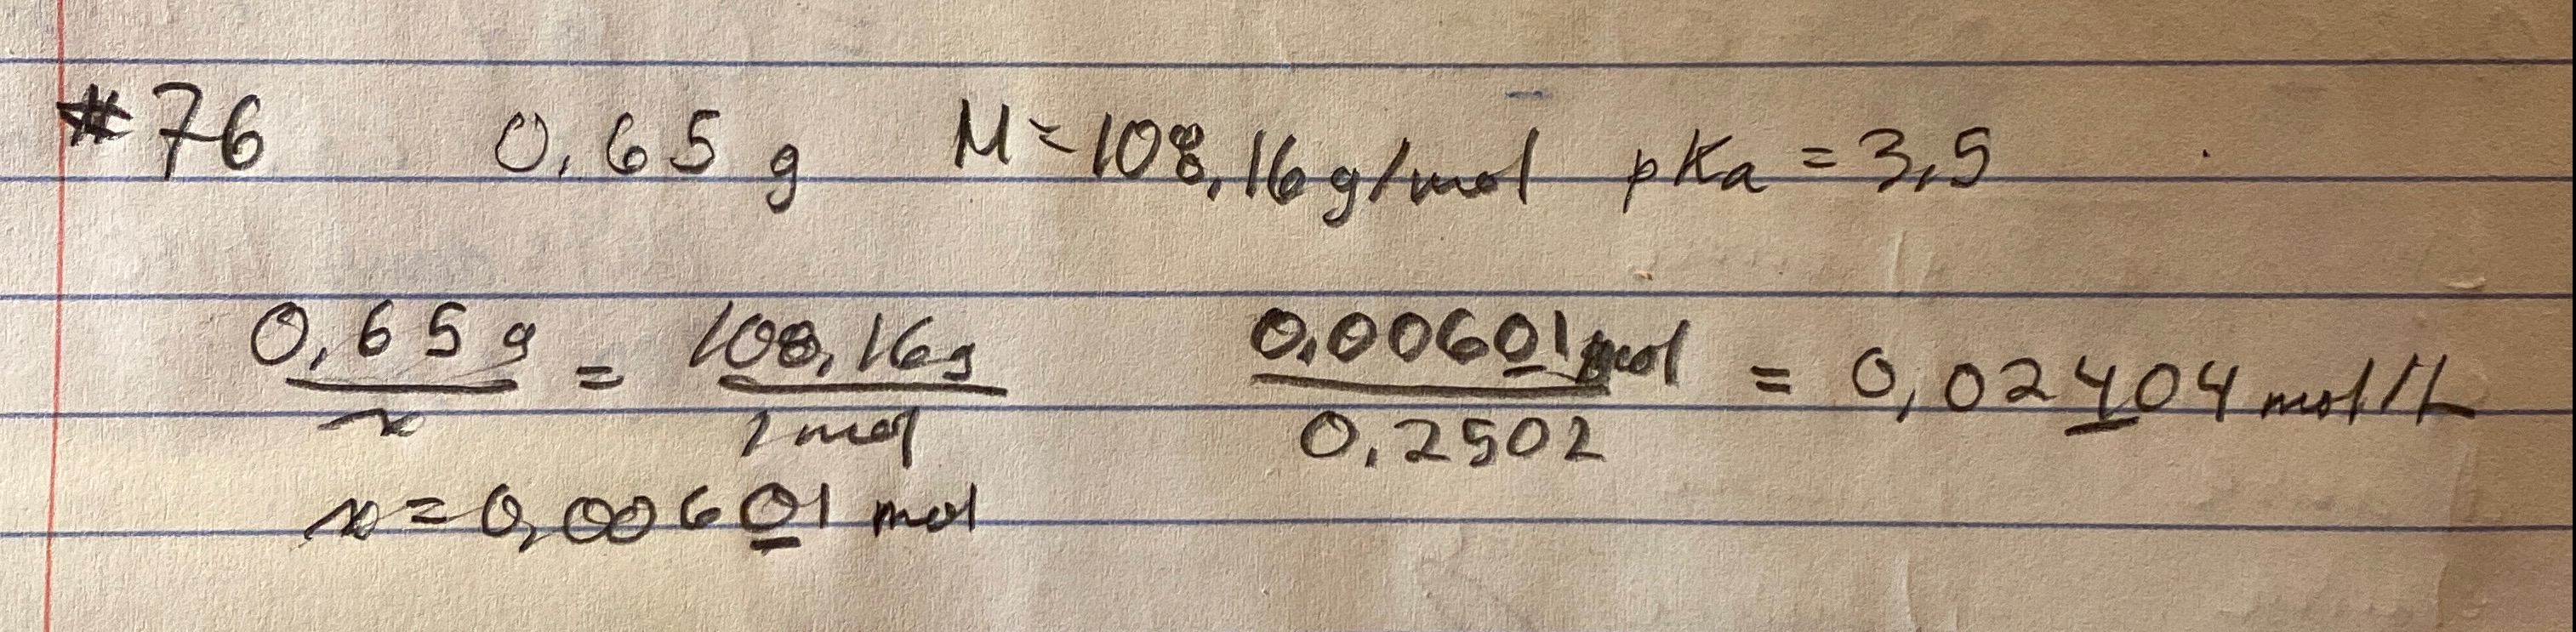 #76 0,65 g M=108,16g/mol pKa = 3,5
0,65g/x = 108,16g/1mol 0,00601mol/0,2502 = 0,02404mol/L
x=0,00601 mol